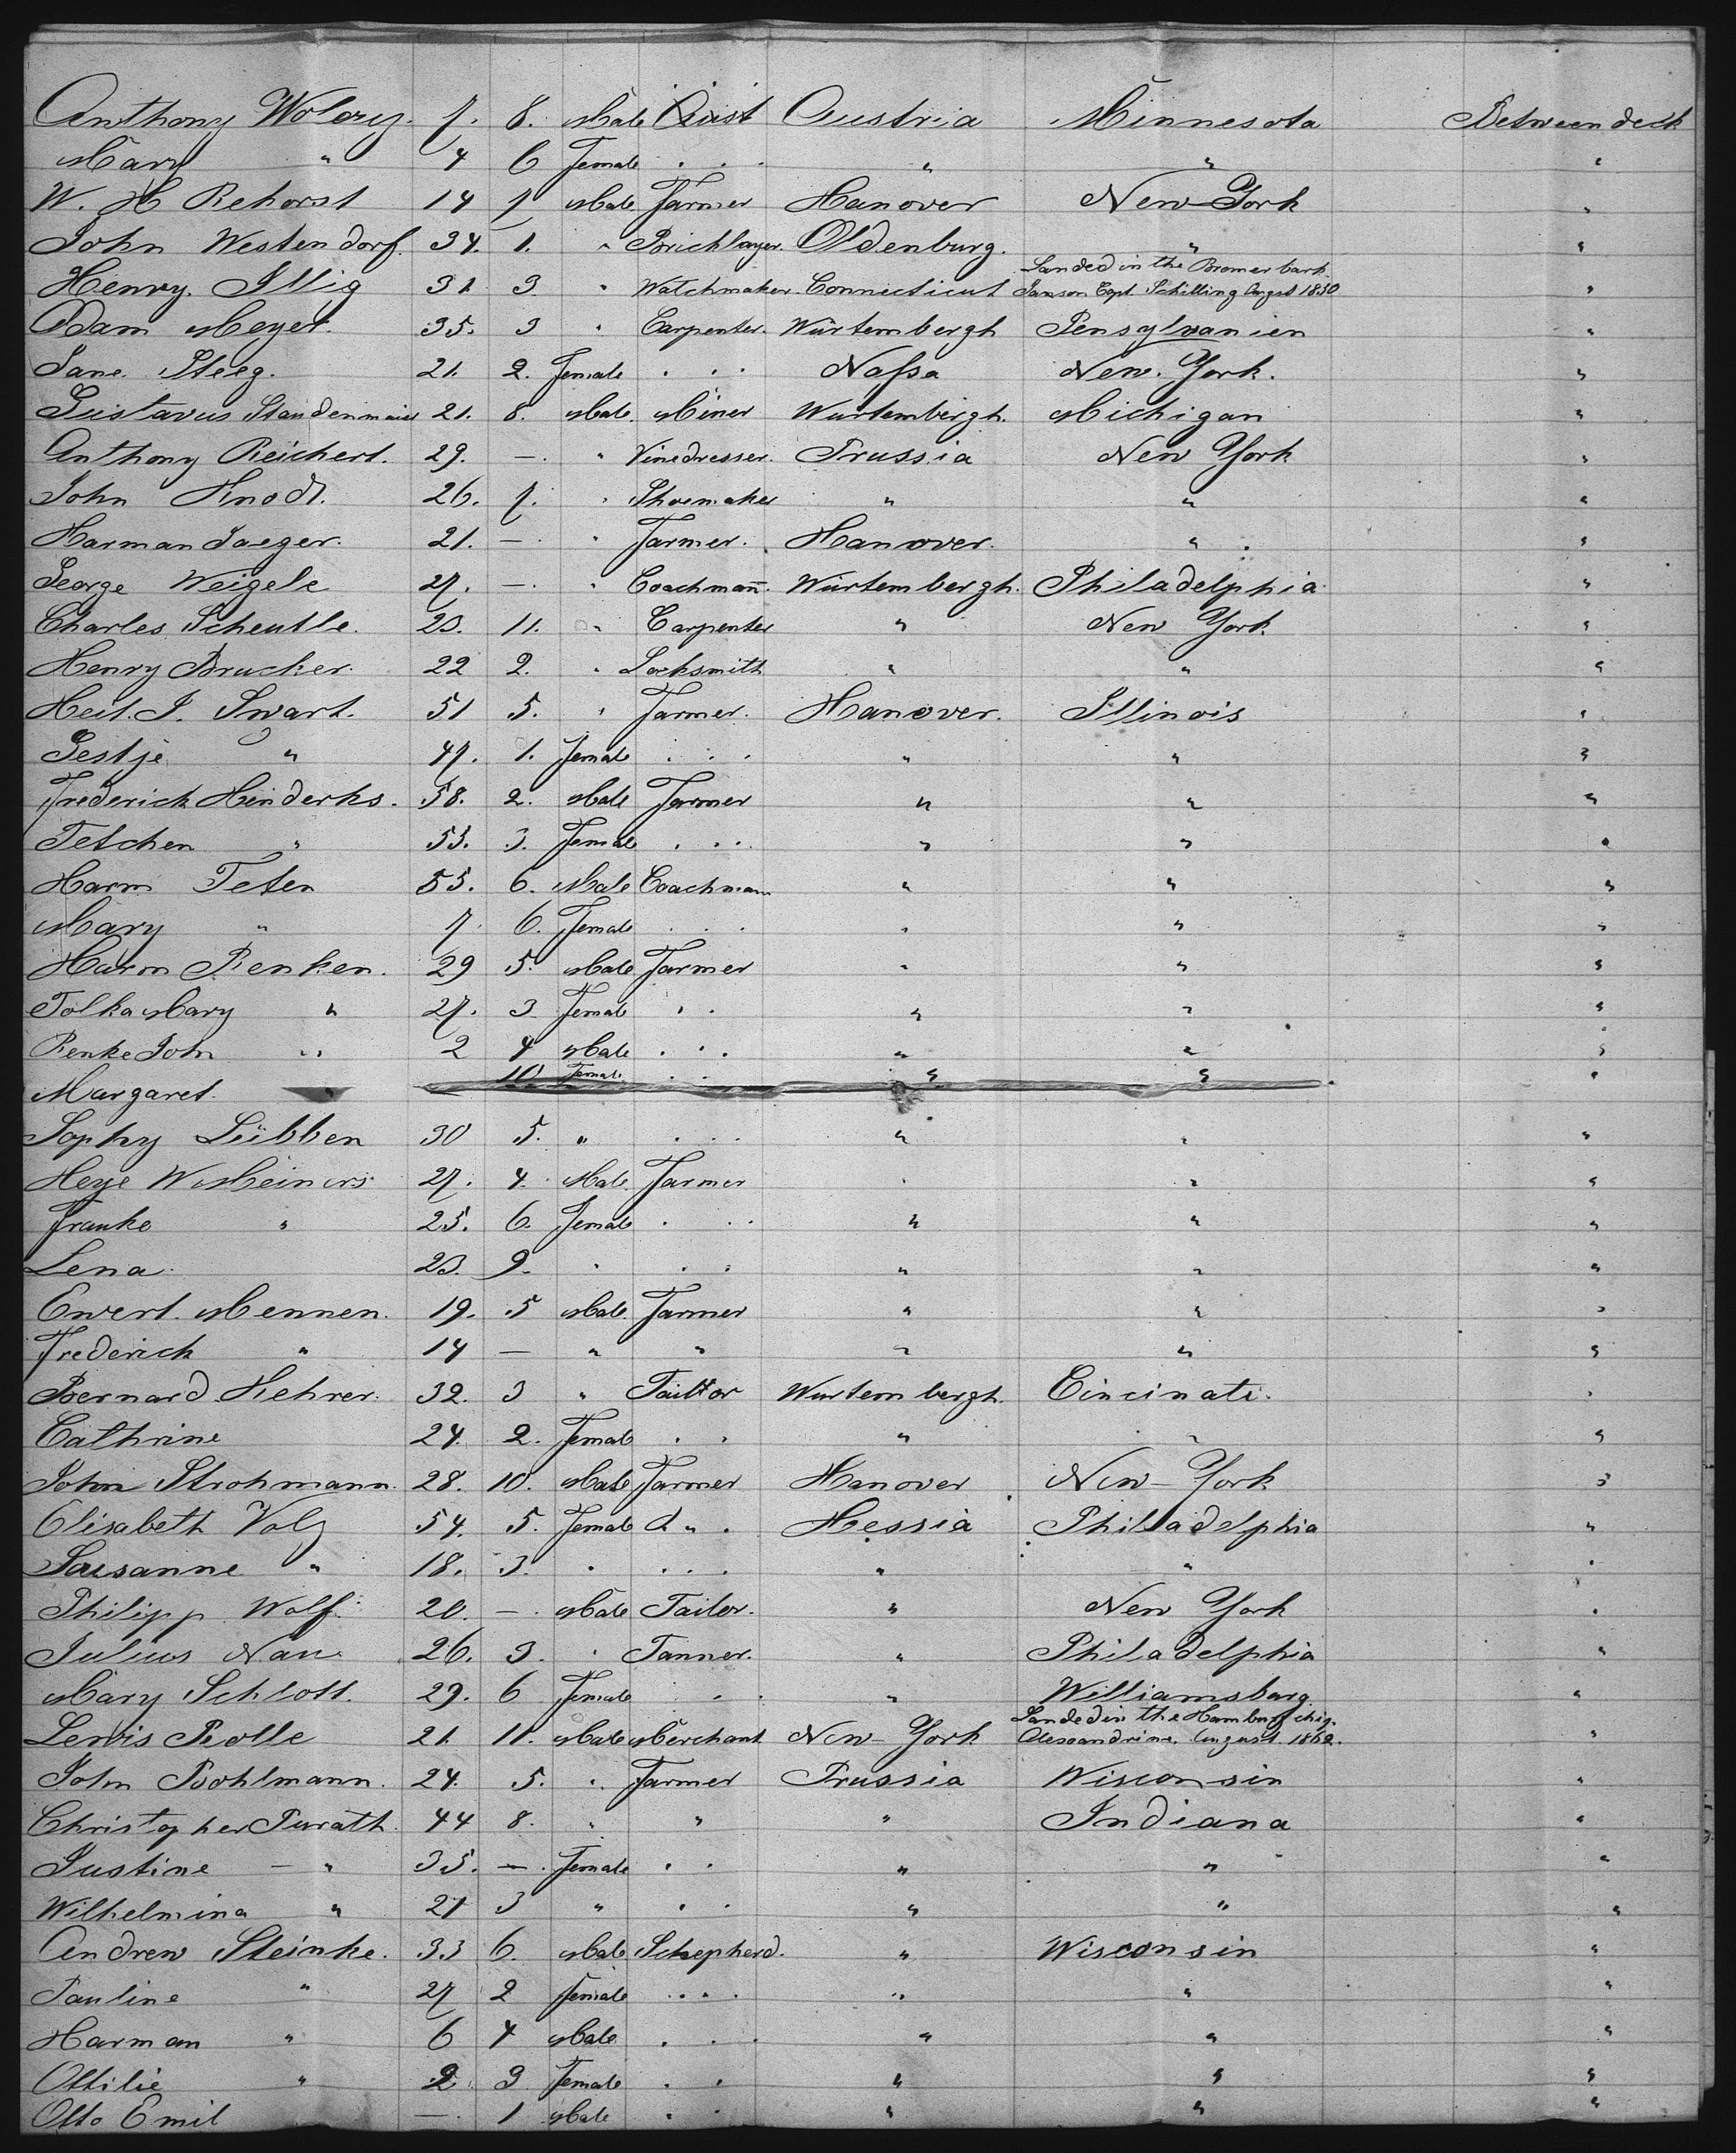 Anthony Wolery. 7. 8. Male Austria Minnesota Between deck
Mary " 4 6 Female . . . " " "
W. H Rehorst 14 7 Male Farmer Hanover New-York "
John Westendorf. 34. 1. " Bricklayer. Oldenburg. " "
Henry. Illig 31 3 " Watchmaker. Connecticut Landed in the Bremer bark Janson Capt. Schilling August 1850 "
Adam Meyer. 35. 3 " Carpenter. Würtembergh Pensylvanien "
Jane. Steeg. 21. 2. Female . . . Nassa New. York. "
Gustavus Staudenmaier 21. 8. Male. Miner Wurtembergh. Michigan "
Anthony Reichert. 29. — " Vinedresser. Prussia New York "
John Knodt. 26. 7. " Shoemaker " " "
Harman Jaeger. 21. — " Farmer. Hanover. " "
George Weigele 27. — " Coachmañ. Würtembergh. Philadelphia "
Charles Scheutle. 23. 11. " Carpenter " New York "
Henry Brucker. 22 2. " Locksmith " " "
Heit. J. Swart. 51 5. " Farmer. Hanover. Illinois "
Gestje " 47. 1. Female . . . " " "
Frederick Hinderks. 58. 2. Male Farmer " " "
Tetchen " 53. 3. Female . . . " " "
Harm Teten 55. 6. Male Coachman " " "
Mary " 7. 6. Female . . . " " "
Harm Renken. 29 5. Male Farmer " " "
Tolka Mary " 27. 3 Female . . " " "
Renke John " 2 4 Male . . . " " "
Margaret. " 10. Female . . " " "
Sophy Lübben 30 5. " . . . " " "
Heye W Meiners 27. 4. Male Farmer " " "
Frauke " 25. 6. Female . . . " " "
Lena. 23. 9. " . . " " "
Ewert. Mennen. 19. 5 Male Farmer " " "
Frederick " 14 — " " " " "
Bernard Kehrer. 32. 3 " Tailor Wurtembergh. Cincinati. "
Cathrine 24. 2. Female . . " " "
John Strohmann. 28. 10. Male Farmer Hanover New-York "
Elisabeth Volz 54. 5. Female . Hessia Philadelphia "
Susanne " 18. 3. " . . . " " "
Philipp Wolf. 20. — Male Tailor. " New York "
Julius Nau 26. 3. " Tanner. " Philadelphia "
Mary Schlott. 29. 6 Female . . " Williamsburg. "
Lewis Rolle 21. 11. Male Merchant New-York Landed in the Hamburg ship. Alexandrine. August. 1862. "
John Bohlmann. 24. 5. " Farmer Prussia Wisconsin "
Christopher Purath. 44 8. " " " Indiana "
Justine — " 35. — Female . . " " "
Wilhelmina " 21 3 " . . " " "
Andrew Steinke. 33 6. Male Schepherd. " Wisconsin "
Pauline " 27 2 Female . . . " " "
Harman " 6 4 Male . . . " " "
Ottilie " 2 3 Female . . " " "
Otto Emil — 1 Male . . " " "